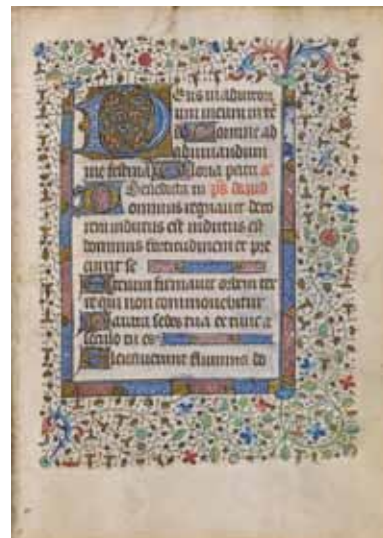 Deus in adiutori
um meum inten
de Domine ad
adiuuandum
me festina Gloria patri
Benedicta tu
Dominus regnauit deco
rem indutus est indutus est
dominus fortitudinem et pre
cinxit se
Etenim firmauit orbem ter
re qui non commouebitur
Parata sedes tua ex tunc a
seculo tu es
Eleuauerunt flumina do